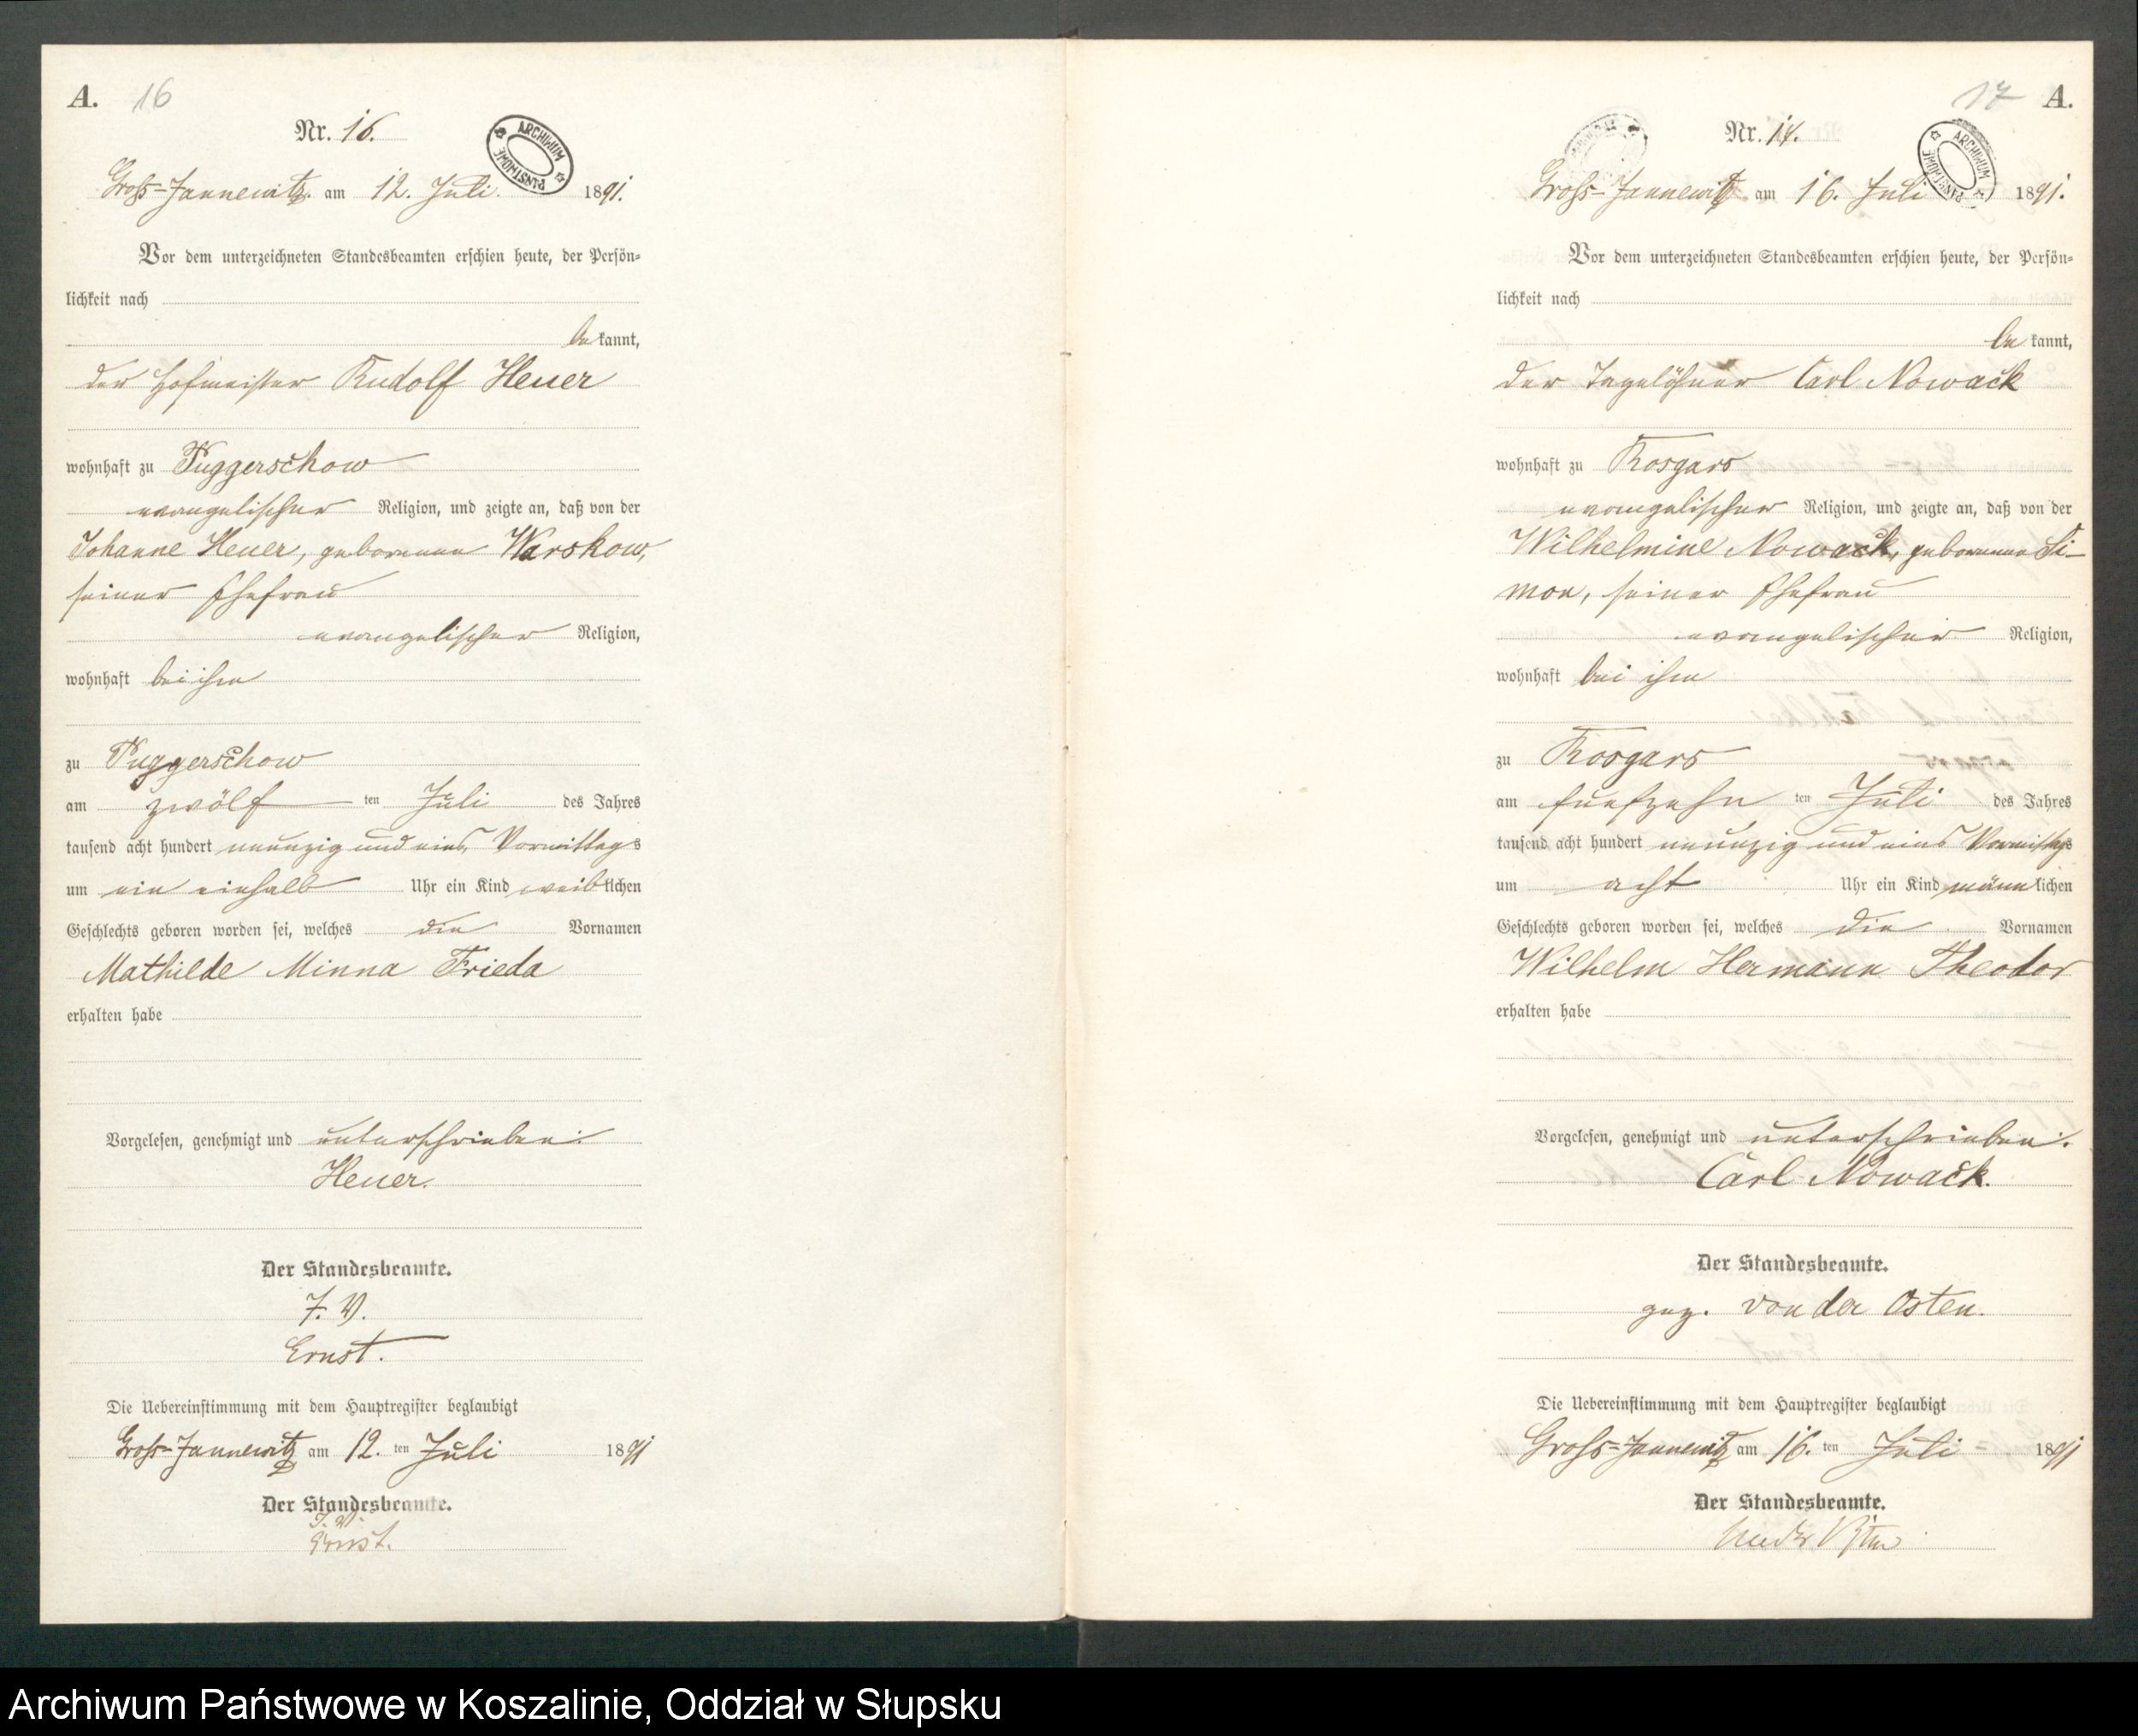 A. 16
Nr. 16.
ARCHIWUM PAŃSTWOWE
Gross-Jannewitz. am 12. Juli 1891.
Vor dem unterzeichneten Standesbeamten erschien heute, der Persön-
lichkeit nach
be kannt,
der Hofmeister Rudolf Heuer
wohnhaft zu Puggerschow
evangelischer Religion, und zeigte an, daß von der
Johanne Heuer, geborenen Warskow,
seiner Ehefrau
evangelischer Religion,
wohnhaft bei ihm
zu Puggerschow
am zwölf ten Juli des Jahres
tausend acht hundert neunzig und eins, Vormittags
um ein einhalb Uhr ein Kind weiblichen
Geschlechts geboren worden sei, welches die Vornamen
Mathilde Minna Frieda
erhalten habe
Vorgelesen, genehmigt und unterschrieben:
Heuer.
Der Standesbeamte.
J. V.
Ernst.
Die Uebereinstimmung mit dem Hauptregister beglaubigt
Gross-Jannewitz am 12. ten Juli 1891
Der Standesbeamte.
J. V.
Ernst.
17 A.
Nr. 17.
ARCHIWUM PAŃSTWOWE
Gross-Jannewitz am 16. Juli 1891.
Vor dem unterzeichneten Standesbeamten erschien heute, der Persön-
lichkeit nach
be kannt,
der Tagelöhner Carl Nowack
wohnhaft zu Rosgars
evangelischer Religion, und zeigte an, daß von der
Wilhelmine Nowack, geborenen Si-
mon, seiner Ehefrau
evangelischer Religion,
wohnhaft bei ihm
zu Rosgars
am fünfzehn ten Juli des Jahres
tausend acht hundert neunzig und eins Vormittags
um acht Uhr ein Kind männlichen
Geschlechts geboren worden sei, welches die Vornamen
Wilhelm Hermann Theodor
erhalten habe
Vorgelesen, genehmigt und unterschrieben:
Carl Nowack.
Der Standesbeamte.
gez. von der Osten.
Die Uebereinstimmung mit dem Hauptregister beglaubigt
Gross-Jannewitz am 16. ten Juli 1891
Der Standesbeamte.
Archiwum Państwowe w Koszalinie, Oddział w Słupsku